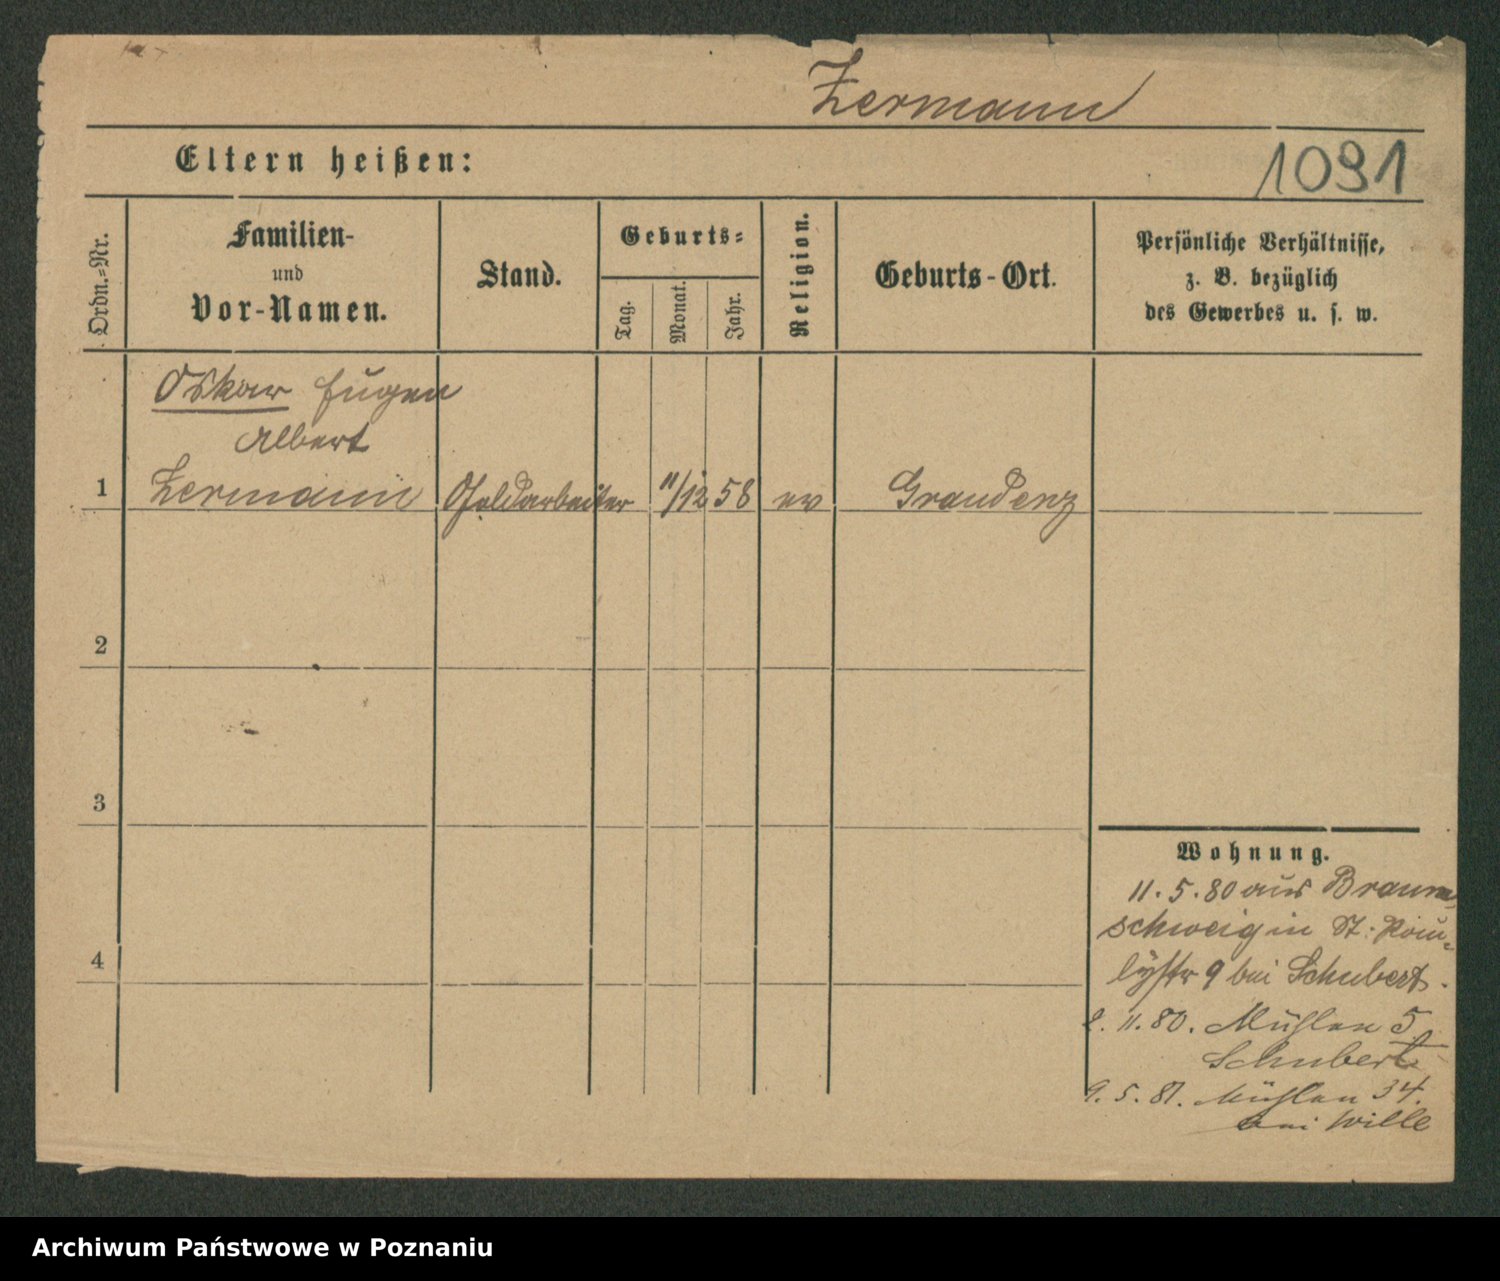 Zermann
Eltern heißen:
1091
Ordn.=Nr.
Familien-
und
Vor-Namen.
Stand.
Geburts=
Tag.
Monat.
Jahr.
Religion.
Geburts-Ort.
Persönliche Verhältnisse,
z. B. bezüglich
des Gewerbes u. s. w.
Oskar Eugen
Albert
1 Zermann Goldarbeiter 11/12 58 ev Graudenz
2
3
4
Wohnung.
11.5.80 aus Braun
schweig in St:
9 bei Schubert.
2.11.80. Mühlen 5
Schubert
9.5.81. Mühlen 34.
bei Wille
Archiwum Państwowe w Poznaniu